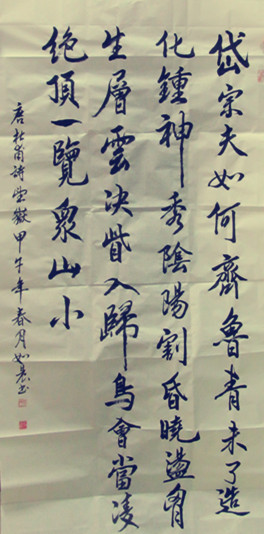 岱宗夫如何齊魯青未了造
化鍾神秀陰陽割昏曉盪胷
生層雲決眥入歸鳥會當凌
絕頂一覽衆山小
唐杜甫詩望嶽甲午年春月如書